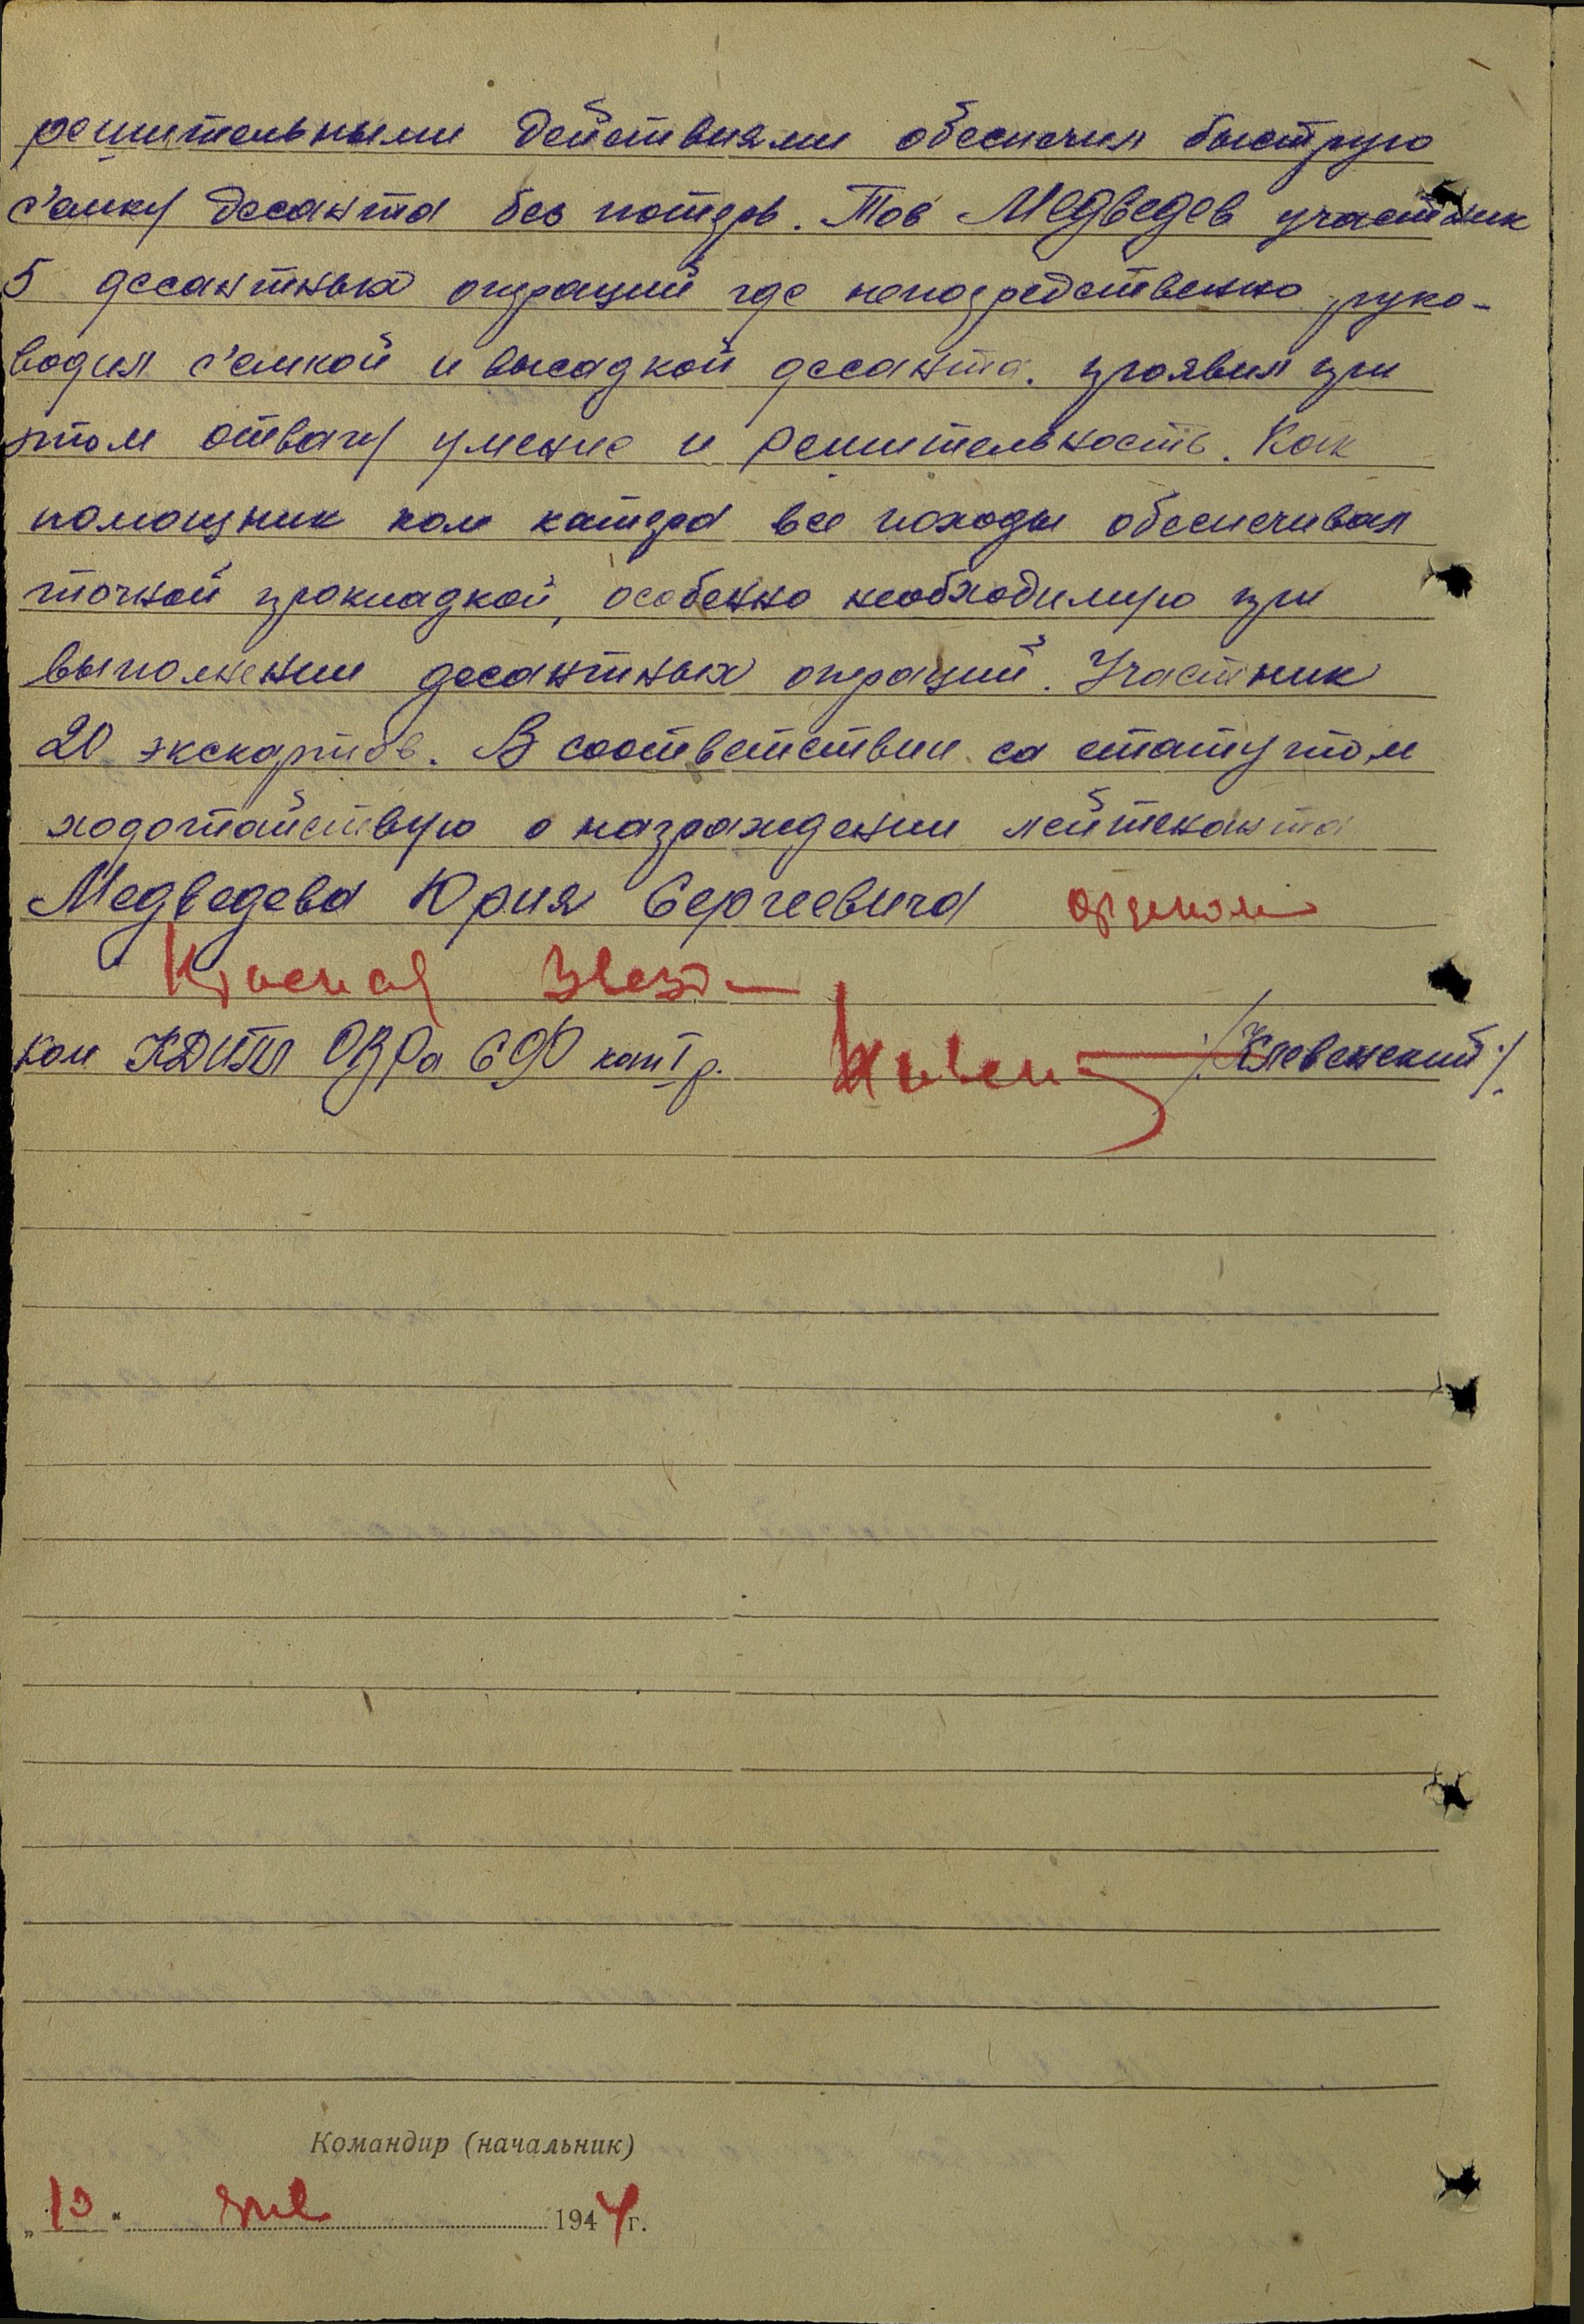 решительными действиями обеспечил быструю
с'емку десанта без потерь. Тов Медведев участник
5 десантных операций где непосредственно руко-
водил с'емкой и высадкой десанта. проявил при
этом отвагу умение и решительность. Как
помощник ком катера все походы обеспечивал
точной прокладкой, особенно необходимую при
выполнении десантных операций. Участник
20 эскортов. В соответствии со статутом
ходотайствую о награждении лейтенанта
Медведева Юрия Сергеевича орденом
Красная Звезда
Ком КДИТЩ ОВРа СФ кап 1 р. /Клевенский/.
Командир (начальник)
„10“ янв 1944 г.